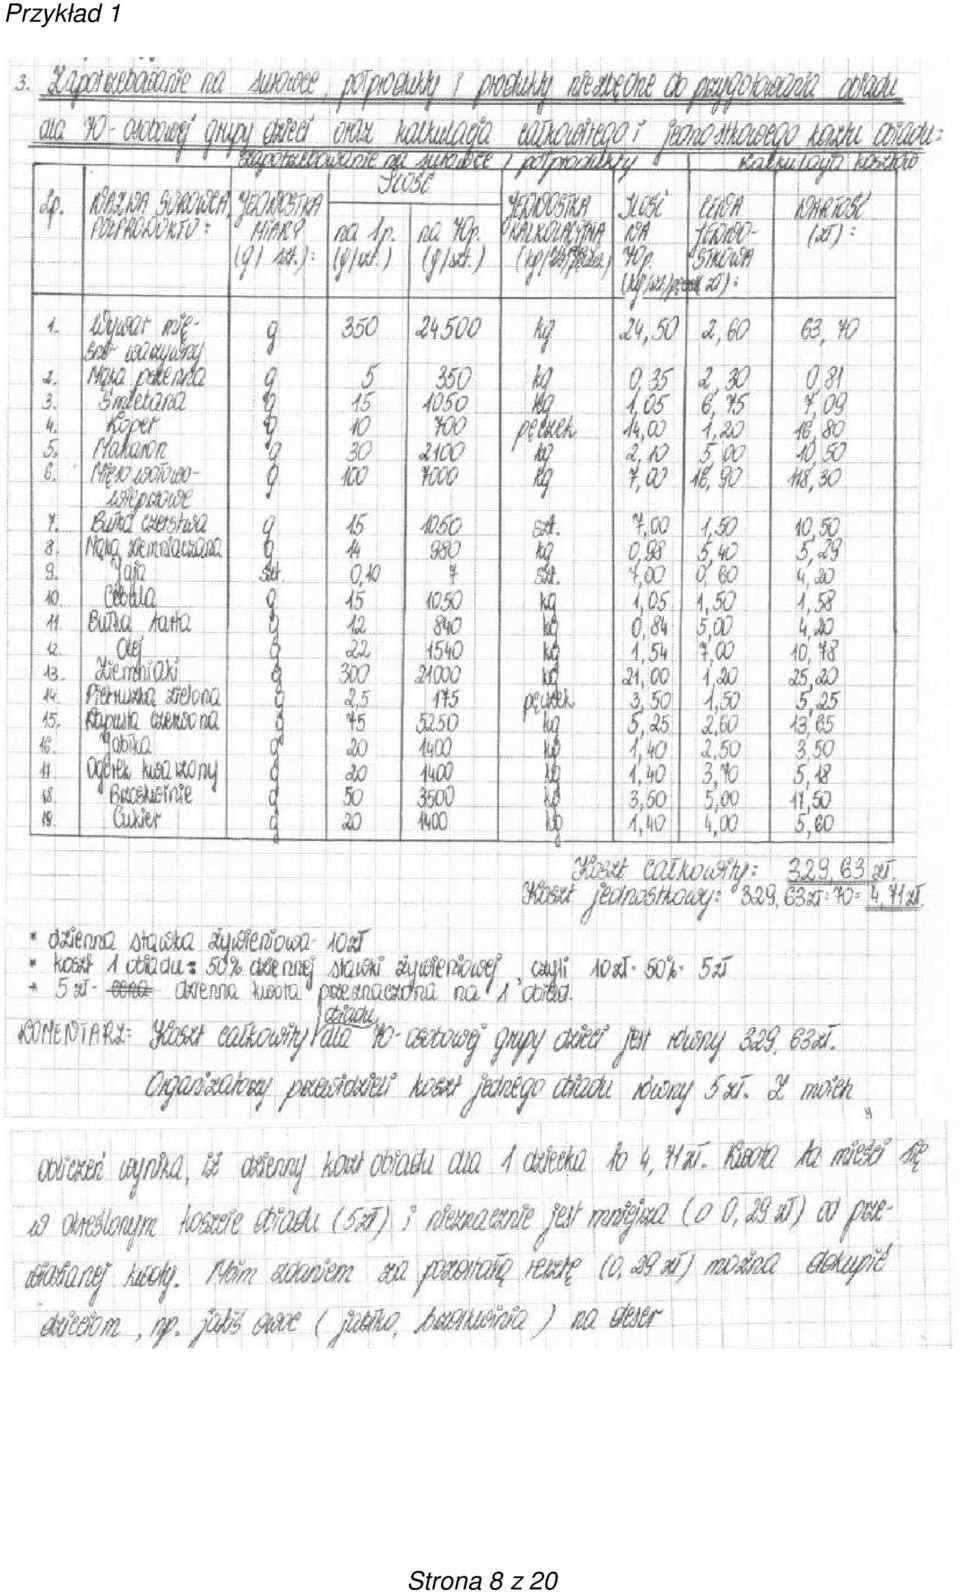 Przykład 1
3. Zapotrzebowanie na surowce, półprodukty i produkty niezbędne do przygotowania obiadu
dla 70-osobowej grupy dzieci oraz kalkulacja całkowitego i jednostkowego kosztu obiadu:
Zapotrzebowanie na surowce i półprodukty Kalkulacja kosztów
Lp. NAZWA SUROWCA, PÓŁPRODUKTU: JEDNOSTKA MIARY (g/ szt.): ILOŚĆ na 1p. (g/szt.) na 70p. (g/szt.) JEDNOSTKA KALKULACYJNA ILOŚĆ NA 70p. CENA JEDNOSTKOWA WARTOŚĆ (zł):
1. Wywar mięsno-warzywny g 350 24500 kg 24,50 2,60 63,70
2. Mąka pszenna g 5 350 kg 0,35 2,30 0,81
3. Śmietana g 15 1050 kg 1,05 6,75 7,09
4. Koper g 10 700 pęczek 14,00 1,20 16,80
5. Makaron g 30 2100 kg 2,10 5,00 10,50
6. Mięso wołowo-wieprzowe g 100 7000 kg 7,00 16,90 118,30
7. Bułka czerstwa g 15 1050 szt. 7,00 1,50 10,50
8. Mąka ziemniaczana g 14 980 kg 0,98 5,40 5,29
9. Jaja szt. 0,10 7 szt. 7,00 0,60 4,20
10. Cebula g 15 1050 kg 1,05 1,50 1,58
11. Bułka tarta g 12 840 kg 0,84 5,00 4,20
12. Olej g 22 1540 kg 1,54 7,00 10,78
13. Ziemniaki g 300 21000 kg 21,00 1,20 25,20
14. Pietruszka zielona g 2,5 175 pęczek 3,50 1,50 5,25
15. Kapusta czerwona g 75 5250 kg 5,25 2,60 13,65
16. Jabłka g 20 1400 kg 1,40 2,50 3,50
17. Ogórek kwaszony g 20 1400 kg 1,40 3,70 5,18
18. Brzoskwinie g 50 3500 kg 3,50 5,00 17,50
19. Cukier g 20 1400 kg 1,40 4,00 5,60
Koszt całkowity: 329,63 zł.
Koszt jednostkowy: 329,63zł:70= 4,71zł.
* dzienna stawka żywieniowa- 10zł
* koszt 1 obiadu = 50% dziennej stawki żywieniowej, czyli 10zł·50%= 5zł
* 5zł- dzienna kwota przeznaczona na 1 obiad.
KOMENTARZ: Koszt całkowity obiadu dla 70-osobowej grupy dzieci jest równy 329,63zł.
Organizatorzy przewidzieli koszt jednego obiadu równy 5zł. Z moich
9
obliczeń wynika, iż dzienny koszt obiadu dla 1 dziecka to 4,71zł. Kwota ta mieści się
w określonym koszcie obiadu (5zł) i nieznacznie jest mniejsza (o 0,29zł) od prze-
widzianej kwoty. Moim zdaniem za pozostałą resztę (0,29zł) można dokupić
dzieciom, np. jakiś owoc (jabłko, brzoskwinia) na deser
Strona 8 z 20